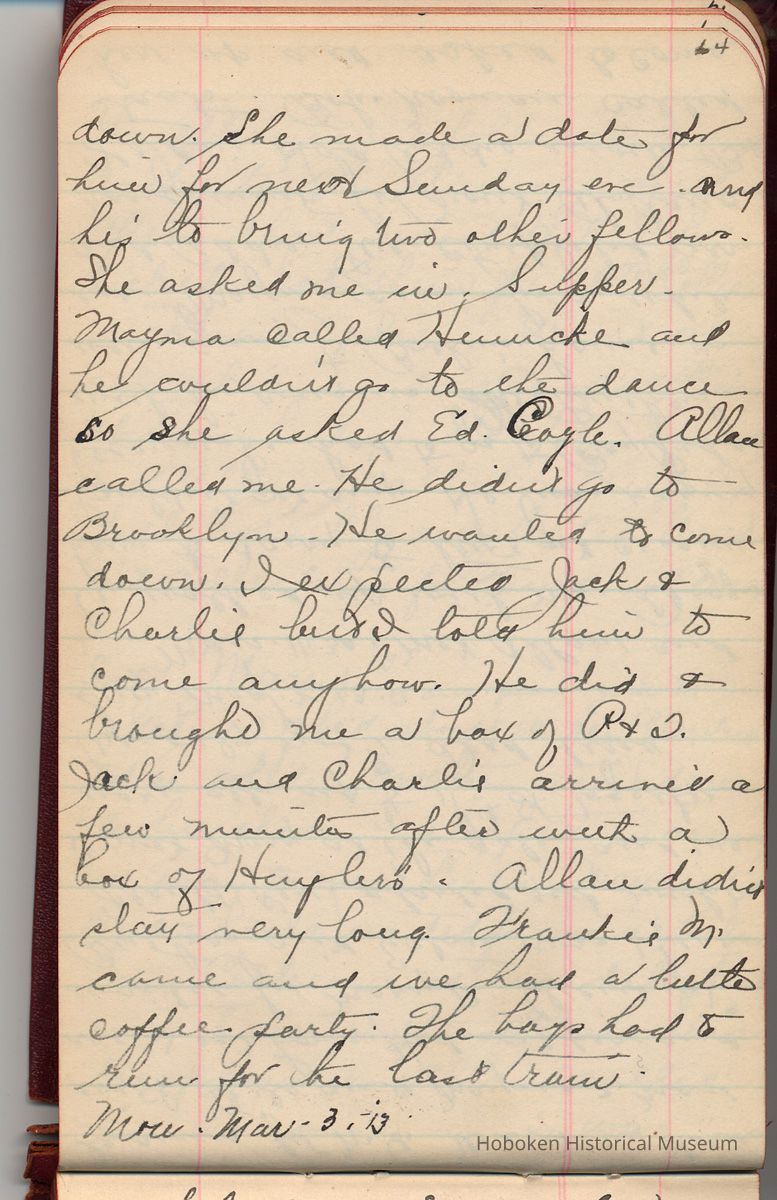 64
down. She made a date for
him for next Sunday eve. and
he's to bring two other fellows.
She asked me in. Supper.
Mayma called Heinicke and
he couldn't go to the dance
so she asked Ed. Coyle. Allan
called me. He didn't go to
Brooklyn. He wanted to come
down. I expected Jack &
Charlie but I told him to
come anyhow. He did &
brought me a box of P & T.
Jack and Charlie arrived a
few minutes after with a
box of Huyler's. Allan didn't
stay very long. Frankie M.
came and we had a little
coffee party. The boys had to
run for the last train.
Mon. Mar-3,-13.
Hoboken Historical Museum